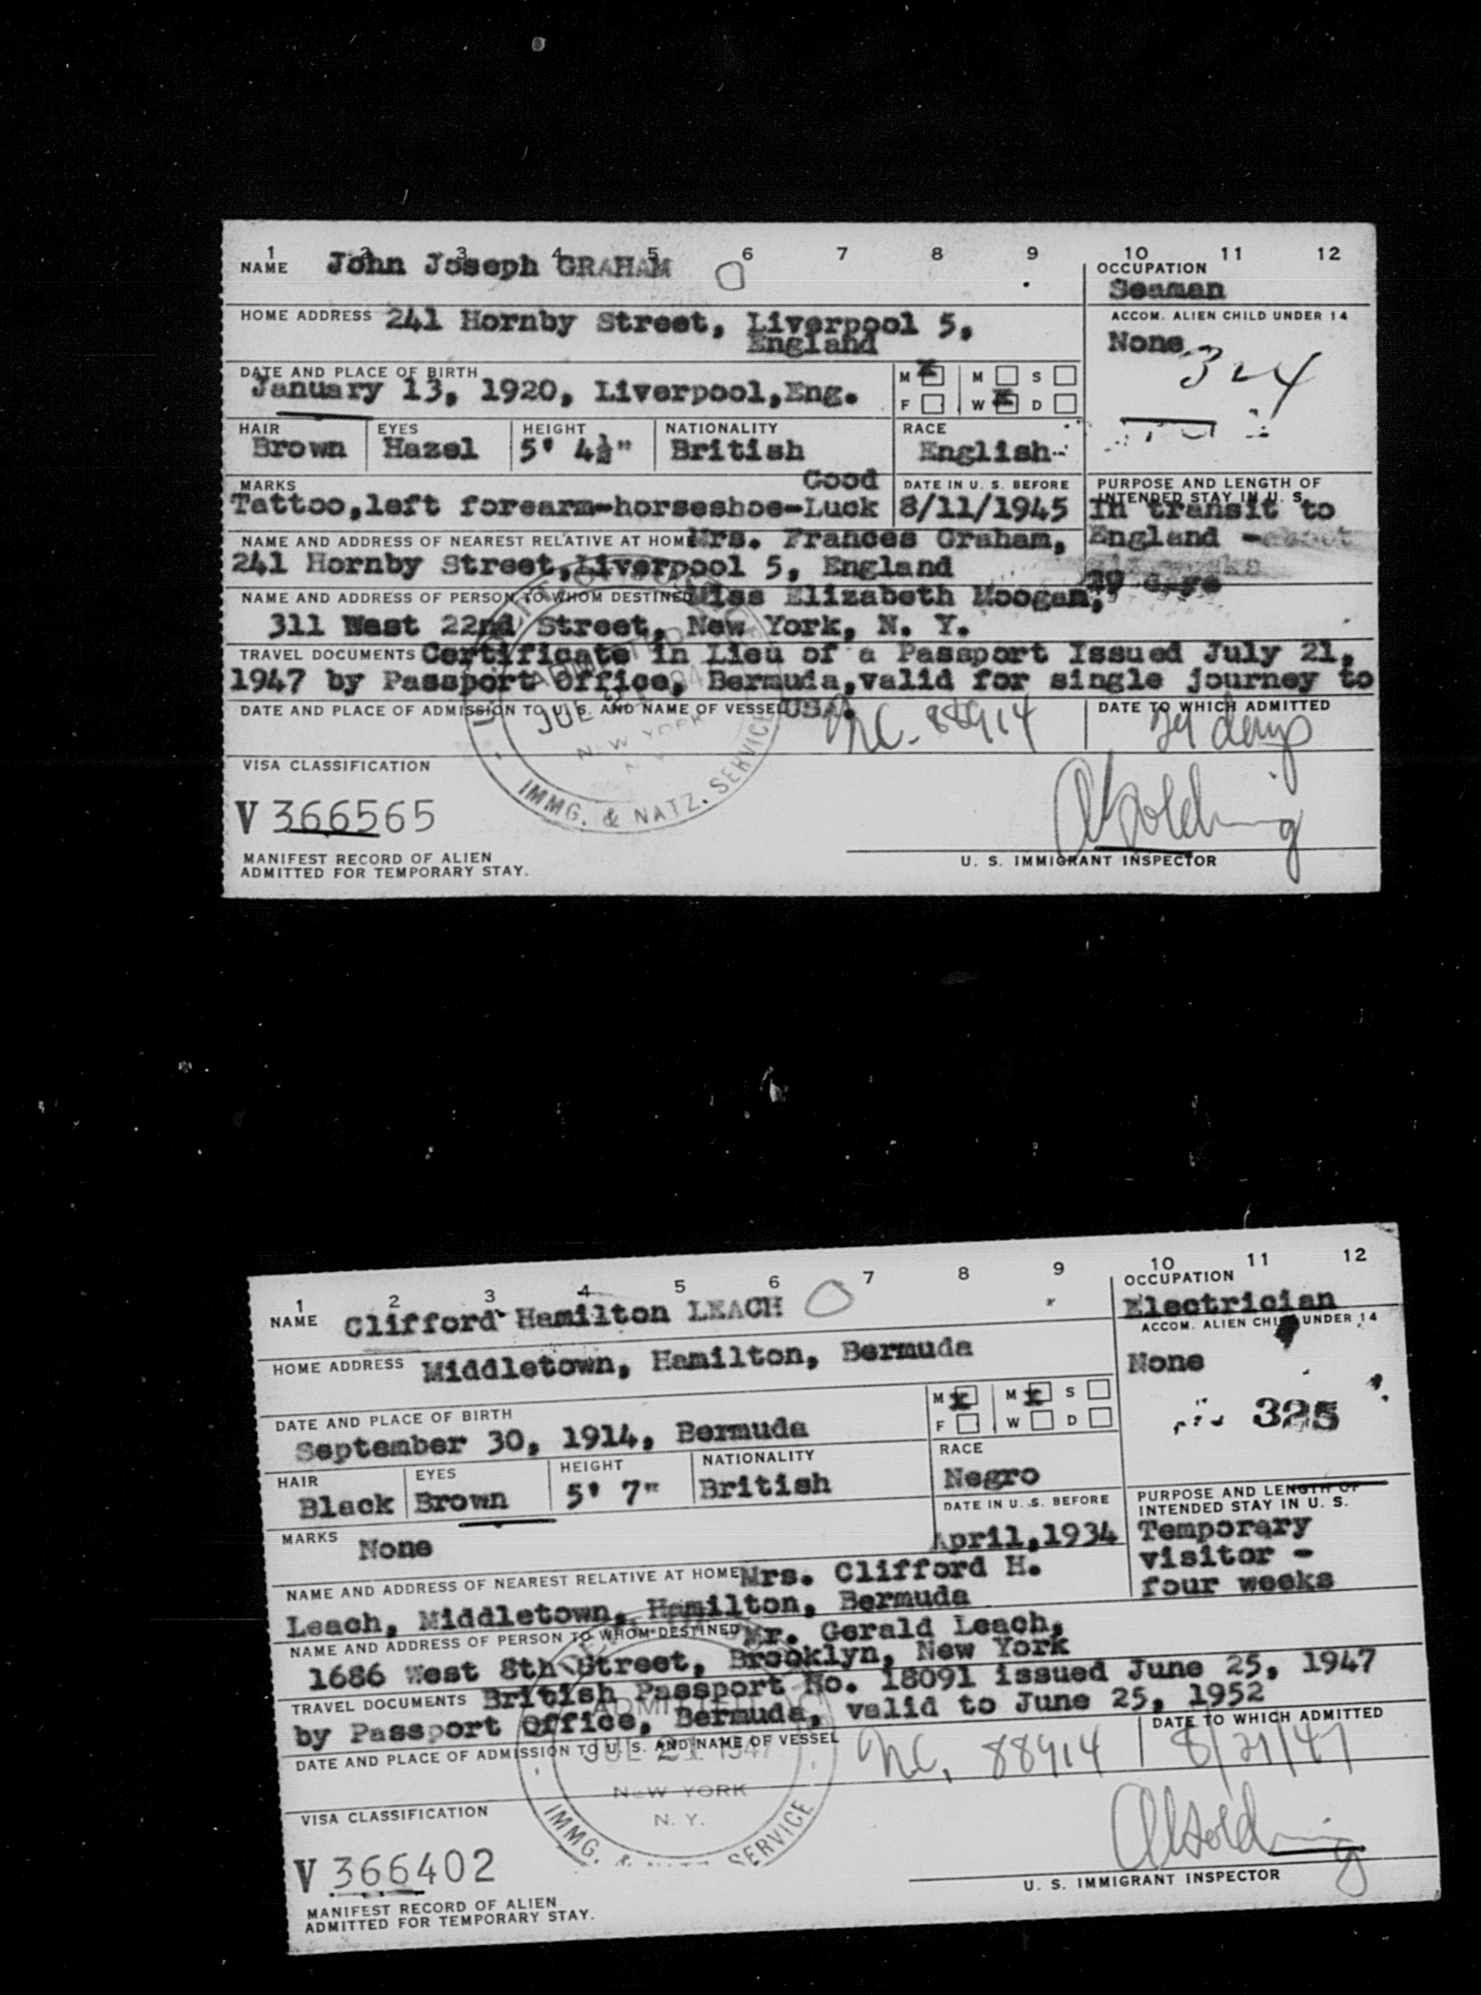 1 2 3 4 5 6 7 8 9 10 11 12
NAME John Joseph GRAHAM
OCCUPATION
Seaman
HOME ADDRESS 241 Hornby Street, Liverpool 5,
England
ACCOM. ALIEN CHILD UNDER 14
None
324
DATE AND PLACE OF BIRTH
January 13, 1920, Liverpool,Eng.
M x M S
F W x D
HAIR EYES HEIGHT NATIONALITY RACE
Brown Hazel 5' 4½" British English
MARKS Good
Tattoo,left forearm-horseshoe-Luck
DATE IN U. S. BEFORE
8/11/1945
PURPOSE AND LENGTH OF
INTENDED STAY IN U. S.
In transit to
England -
29 days
NAME AND ADDRESS OF NEAREST RELATIVE AT HOME Mrs. Frances Graham,
241 Hornby Street,Liverpool 5, England
NAME AND ADDRESS OF PERSON TO WHOM DESTINED Miss Elizabeth Moogan,
311 West 22nd Street, New York, N. Y.
TRAVEL DOCUMENTS Certificate in Lieu of a Passport Issued July 21,
1947 by Passport Office, Bermuda,valid for single journey to
USA.
DATE AND PLACE OF ADMISSION TO U. S. AND NAME OF VESSEL
NC. 88914
DATE TO WHICH ADMITTED
29 days
ADMITTED
JUL
NEW YORK
IMMG. & NATZ. SERVICE
VISA CLASSIFICATION
V 366565
MANIFEST RECORD OF ALIEN
ADMITTED FOR TEMPORARY STAY.
U. S. IMMIGRANT INSPECTOR
1 2 3 4 5 6 7 8 9 10 11 12
NAME Clifford Hamilton LEACH
OCCUPATION
Electrician
HOME ADDRESS Middletown, Hamilton, Bermuda
ACCOM. ALIEN CHILD UNDER 14
None
325
DATE AND PLACE OF BIRTH
September 30, 1914, Bermuda
M x M x S
F W D
HAIR EYES HEIGHT NATIONALITY RACE
Black Brown 5' 7" British Negro
MARKS None
DATE IN U. S. BEFORE
April,1934
PURPOSE AND LENGTH OF
INTENDED STAY IN U. S.
Temporary
visitor -
four weeks
NAME AND ADDRESS OF NEAREST RELATIVE AT HOME Mrs. Clifford H.
Leach, Middletown, Hamilton, Bermuda
NAME AND ADDRESS OF PERSON TO WHOM DESTINED Mr. Gerald Leach,
1686 West 8th Street, Brooklyn, New York
TRAVEL DOCUMENTS British Passport No. 18091 issued June 25, 1947
by Passport Office, Bermuda, valid to June 25, 1952
DATE AND PLACE OF ADMISSION TO U. S. AND NAME OF VESSEL
NC. 88914
DATE TO WHICH ADMITTED
8/21/47
ADMITTED
JUL 21 1947
NEW YORK
N. Y.
IMMG. & NATZ. SERVICE
VISA CLASSIFICATION
V 366402
MANIFEST RECORD OF ALIEN
ADMITTED FOR TEMPORARY STAY.
U. S. IMMIGRANT INSPECTOR